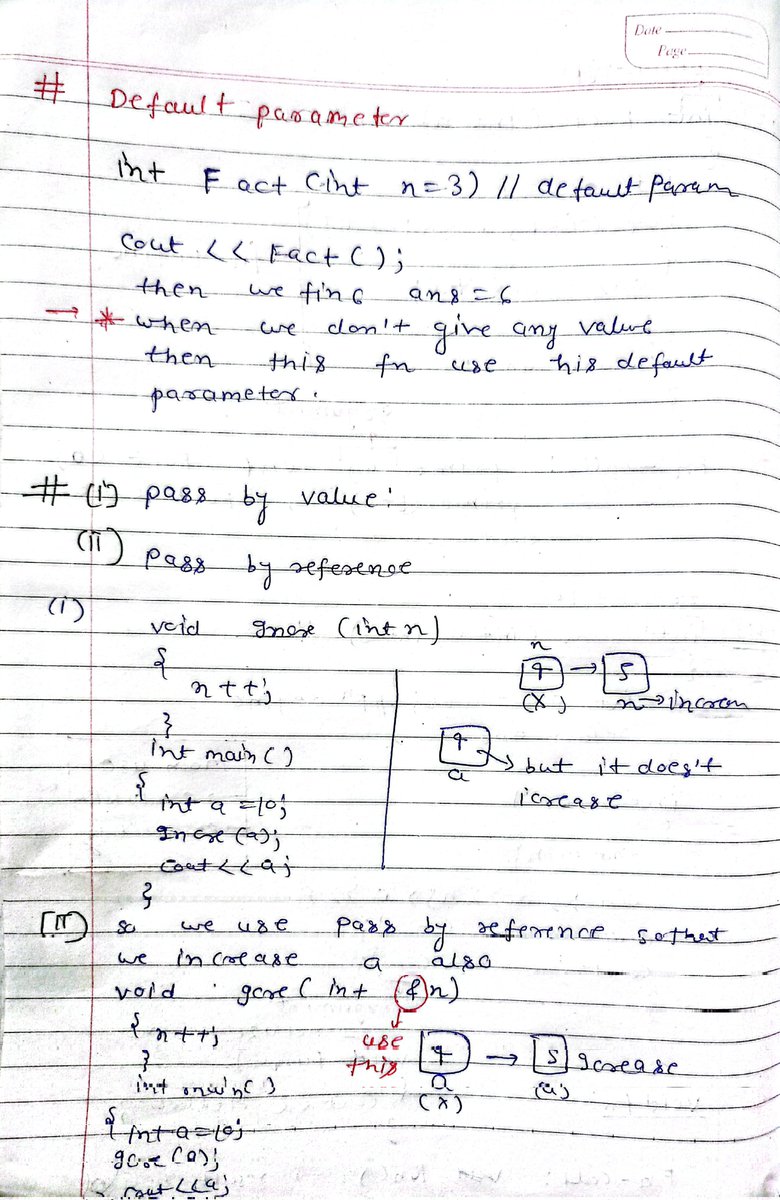 Date
Page
# Default parameter
int Fact (int n=3) // default Param
Cout << Fact ( );
then we fin6 ans = 6
→ * when we don't give any value
then this fn use his default
parameter.
# (i) pass by value:
(ii) pass by reference
(i)
void Incre (int n)
{
n++;
}
int main ( )
{
int a = 10;
Incre (a);
cout << a;
}
n
4 → 5
(X) n → increm
4
a
but it does't
icrease
(ii) so we use pass by reference sothat
we increase a also
void gcre ( int & n)
{ n++;
}
int main ( )
{ int a = 10;
gcre (a);
cout << a;
use
this
4 → 5 Icrease
a (a)
(X)